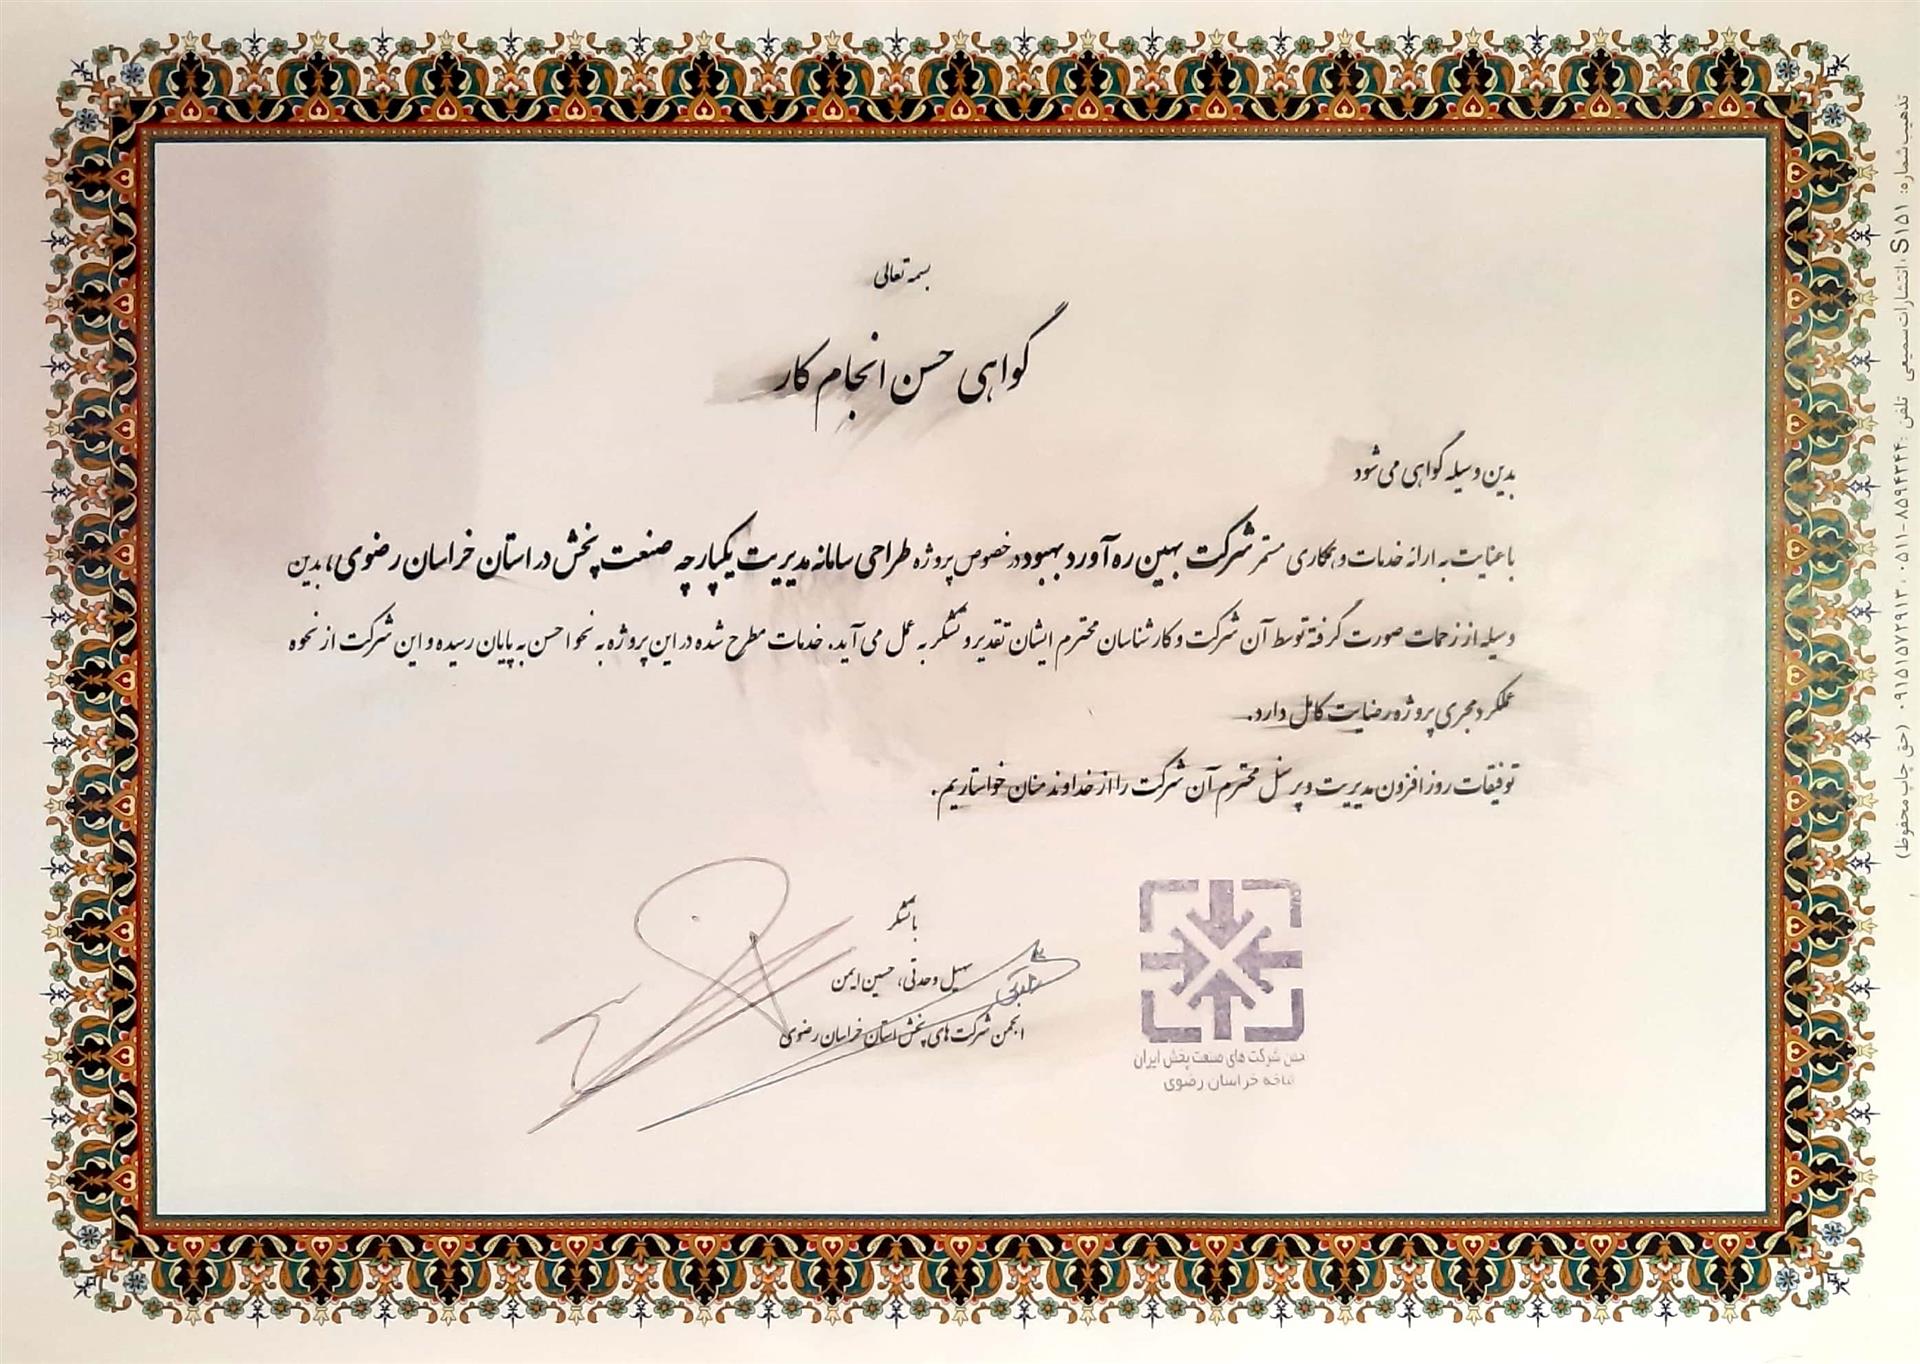 بسمه تعالی
گواهی حسن انجام کار
بدین وسیله گواهی می شود
با عنایت به ارائه خدمات و همکاری مستمر شرکت بهین ره آورد بهبود در خصوص پروژه طراحی سامانه مدیریت یکپارچه صنعت پخش در استان خراسان رضوی، بدین
وسیله از زحمات صورت گرفته توسط آن شرکت و کارشناسان محترم ایشان تقدیر و تشکر به عمل می آید. خدمات مطرح شده در این پروژه به نحو احسن به پایان رسیده و این شرکت از نحوه
عملکرد مجری پروژه رضایت کامل دارد.
توفیقات روز افزون مدیریت و پرسنل محترم آن شرکت را از خداوند منان خواستاریم.
با تشکر
سهیل وحدتی، حسین ایمن
انجمن شرکت های پخش استان خراسان رضوی
شرکت های صنعت پخش ایران
شاخه خراسان رضوی
تذهیب شماره: S۱۵۱ انتشارات سمیعی تلفن: ۸۵۹۴۳۴۴-۰۵۱۱ ۰۹۱۵۱۵۷۲۹۱۳ (حق چاپ محفوظ)